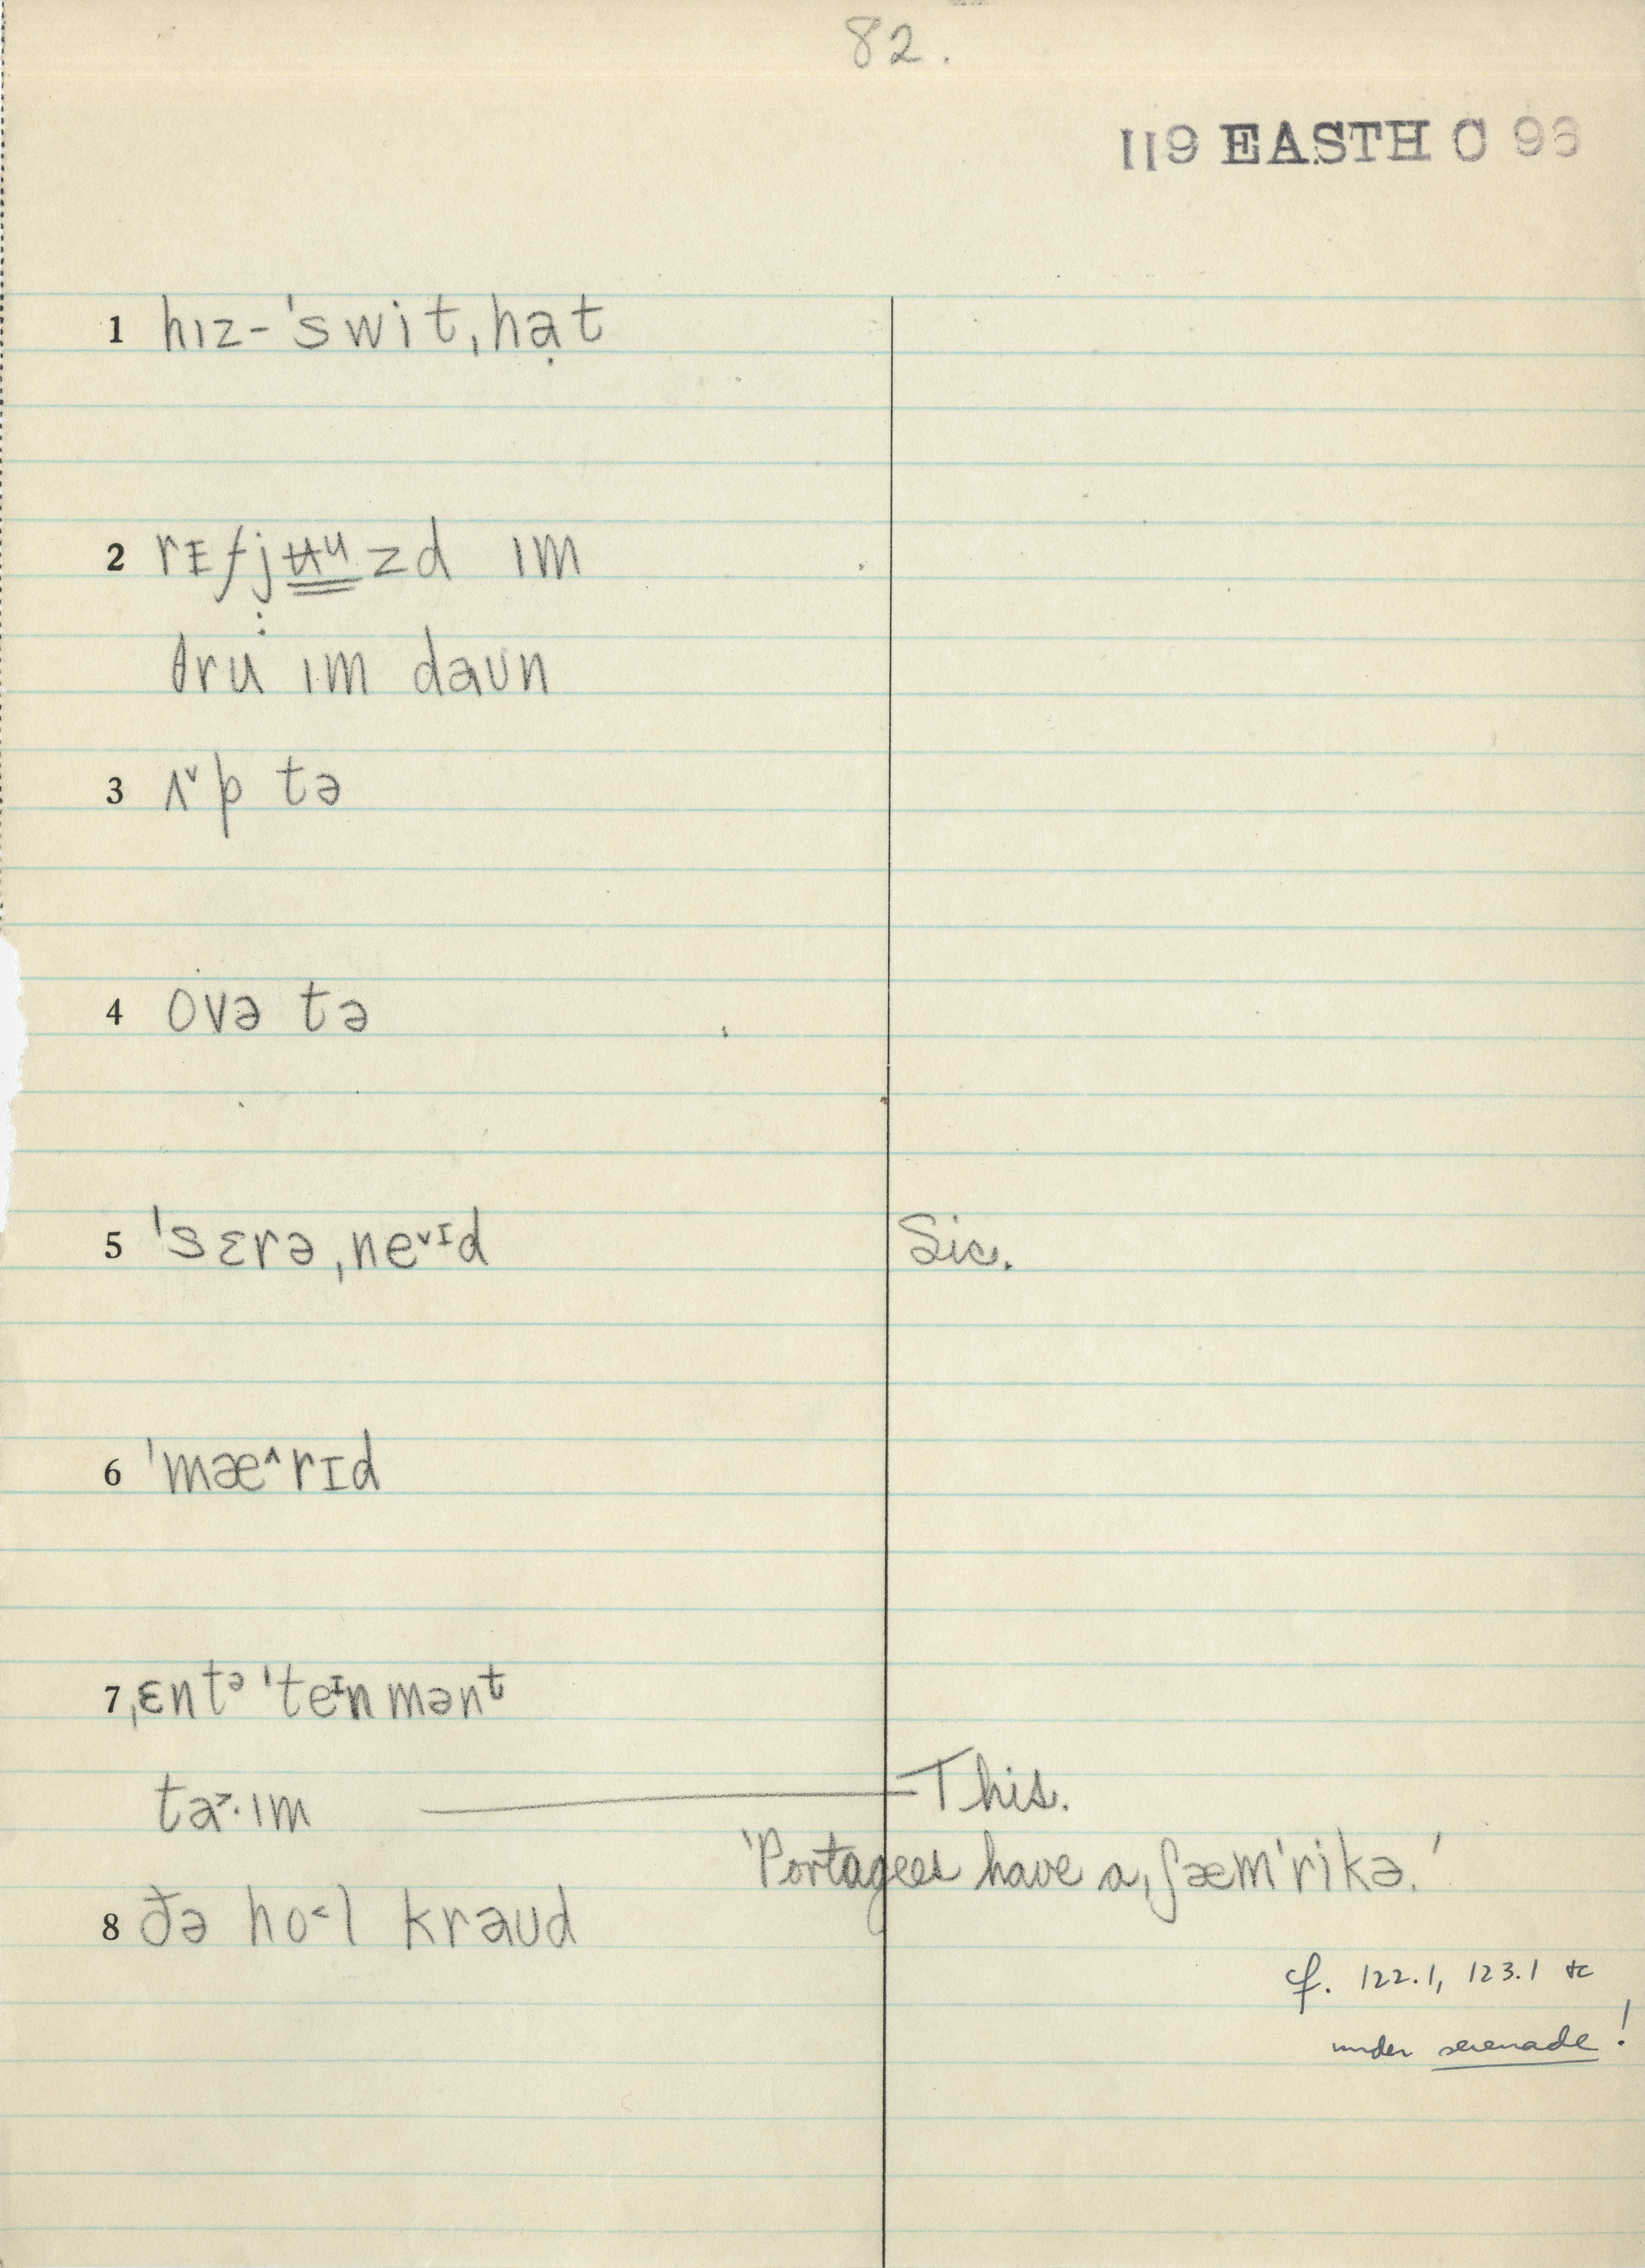 82.
119 EASTH C 93
1 hɪz-ˈswitˌhạt
2 rᵻfjʉᵘzd ɪm
θru ɪm daʊn
3 ʌ˅p tə
4 ovə tə
5 ˈsɛrəˌne˅ᴵd Sic.
6 ˈmæ^rɪd
7 ˌɛntᵊˈteᴵnmənt
ta˃·ɪm This.
'Portagees have a ˌʃæmˈrikə.'
8 ðə ho˂l kraʊd
cf. 122.1, 123.1 &c
under serenade!